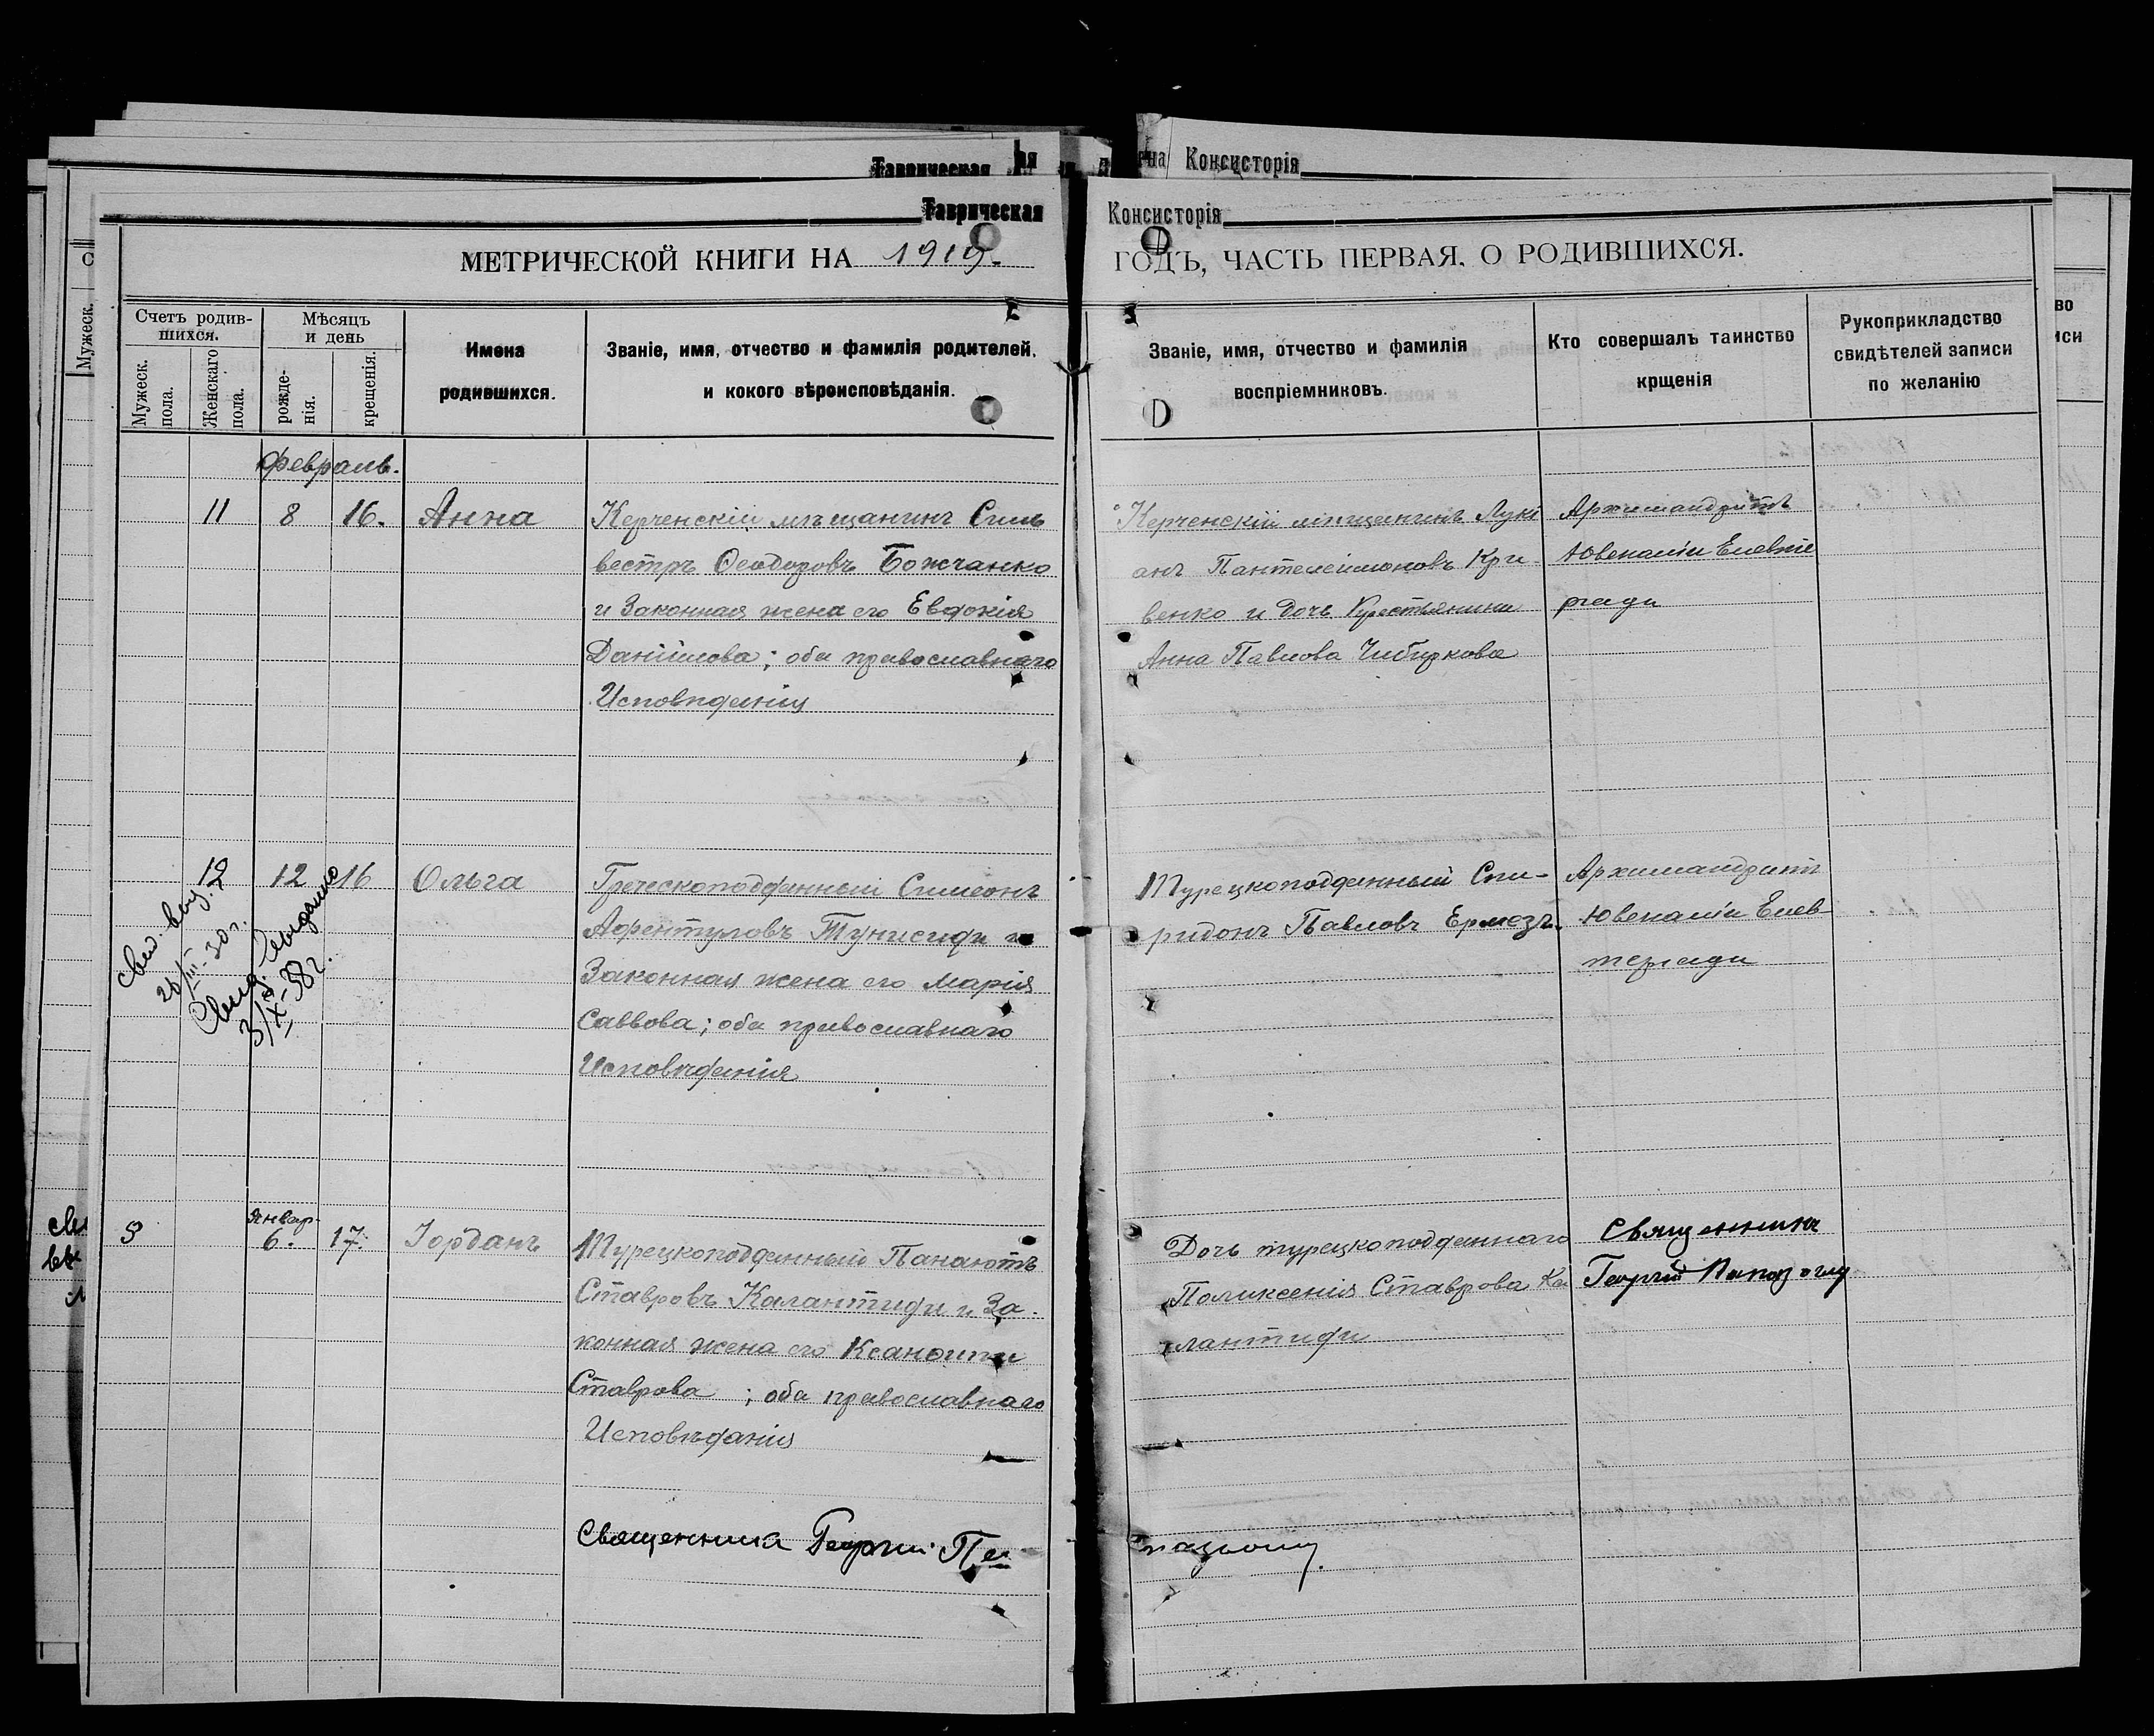 Таврическая
на Консисторія
Таврическая Консисторія
МЕТРИЧЕСКОЙ КНИГИ НА 1919. ГОДЪ, ЧАСТЬ ПЕРВАЯ, О РОДИВШИХСЯ.
Счетъ родив-
шихся.
Мужеск.
пола.
Женскаго
пола.
Мѣсяцъ
и день
рожде-
нія.
крещенія.
Имена
родившихся.
Званіе, имя, отчество и фамилія родителей,
и кокого вѣроисповѣданія.
Званіе, имя, отчество и фамилія
воспріемниковъ.
Кто совершалъ таинство
крщенія
Рукоприкладство
свидѣтелей записи
по желанію
Мужеск.
Февраль.
11 8 16. Анна
Керченскій мѣщанинъ Силь
вестръ Ѳеодоровъ Божчанко
и Законная жена его Евдокія
Даніилова; оба православнаго
Исповѣданія
Керченскій мѣщанинъ Луки
анъ Пантелеимоновъ Кри-
венко и дочь Крестьянина
Анна Павлова Чибиркова
Архимандритъ
Ювеналій Елевте
ріади
12 12 16 Ольга
Греческоподданный Симеонъ
Афентуловъ Тунисиди и
Законная жена его Марія
Саввова; оба православнаго
Исповѣданія
Турецкоподданный Спи-
ридонъ Павловъ Ермозъ.
Архимандритъ
Ювеналій Елев-
теріади
свид. выд.
20/III-30 г.
Свид. выдано
3/X-38 г.
5 Январ. 6. 17. Іорданъ
Турецкоподданный Панаіотъ
Ставровъ Калантиди и За-
конная жена его Ксанѳипи
Ставрова ; оба православнаго
Исповѣданія
Дочь турецкоподданнаго
Поликсенія Ставрова Ка
лантиди
Священникъ
Георгій Папазоглу
Священникъ Георгій Па
пазоглу.